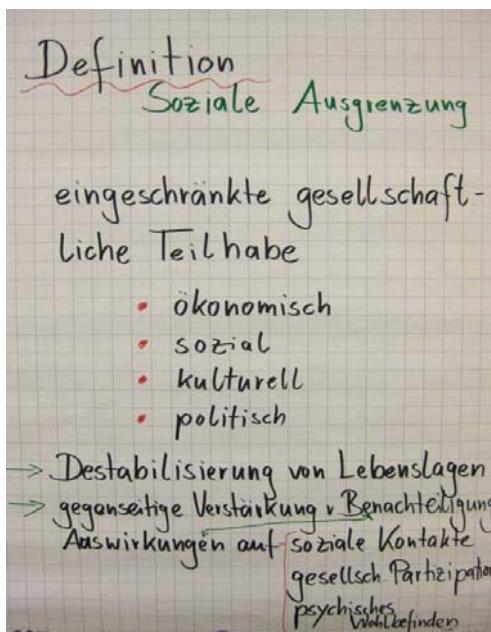 Definition
Soziale Ausgrenzung
eingeschränkte gesellschaft-
liche Teilhabe
• ökonomisch
• sozial
• kulturell
• politisch
→ Destabilisierung von Lebenslagen
→ gegenseitige Verstärkung v Benachteiligung
Auswirkungen auf soziale Kontakte
gesellsch. Partizipation
psychisches
Wohlbefinden